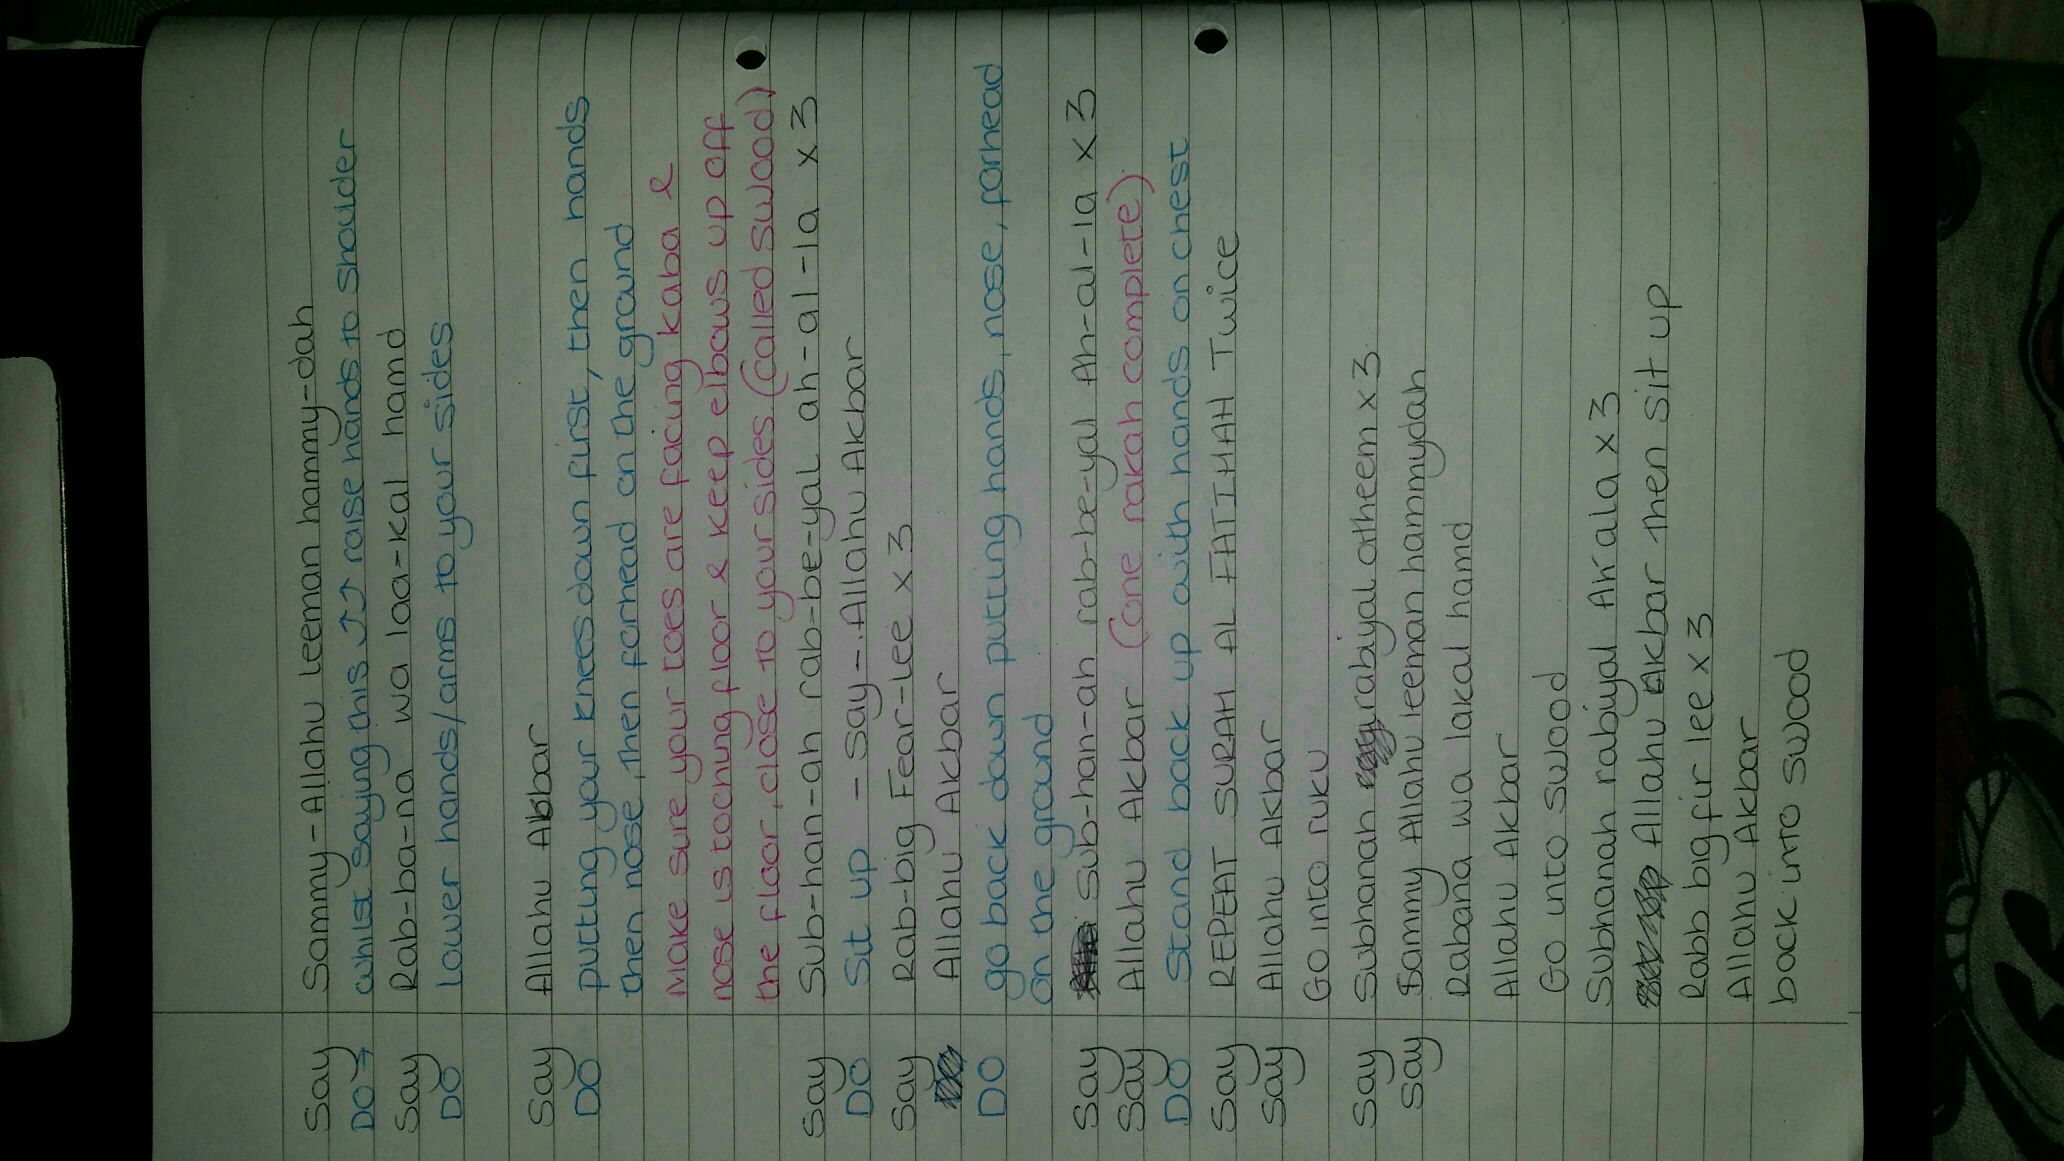 Say Sammy-Allahu leeman hammy-dah
DO → whilst saying this ↑↑ raise hands to shoulder
Say Rab-ba-na wa laa-kal hamd
DO lower hands/arms to your sides
Say Allahu Akbar
DO putting your knees down first, then hands
then nose, then forhead on the ground
Make sure your toes are facing kaba &
nose is toching floor & keep elbows up off
the floor, close to your sides. (called swood)
Say Sub-han-ah rab-be-yal ah-al-la x 3
DO Sit up - say - Allahu Akbar
Say Rab-big Fear-Lee x 3
Allahu Akbar
DO go back down putting hands, nose, forhead
on the ground
Say Sub-han-ah rab-be-yal Ah-al-la x 3
Say Allahu Akbar (one rakah complete)
DO Stand back up with hands on chest
Say REPEAT SURAH AL FATIHAH Twice
Say Allahu Akbar
Go into ruku
Say Subhanah rabiyal atheem x 3.
Say Sammy Allahu leeman hammydah
Rabana wa lakal hamd
Allahu Akbar
Go into swood
Subhanah rabiyal Akala x 3
Allahu Akbar then sit up
Rabb big fir lee x 3
Allahu Akbar
back into swood